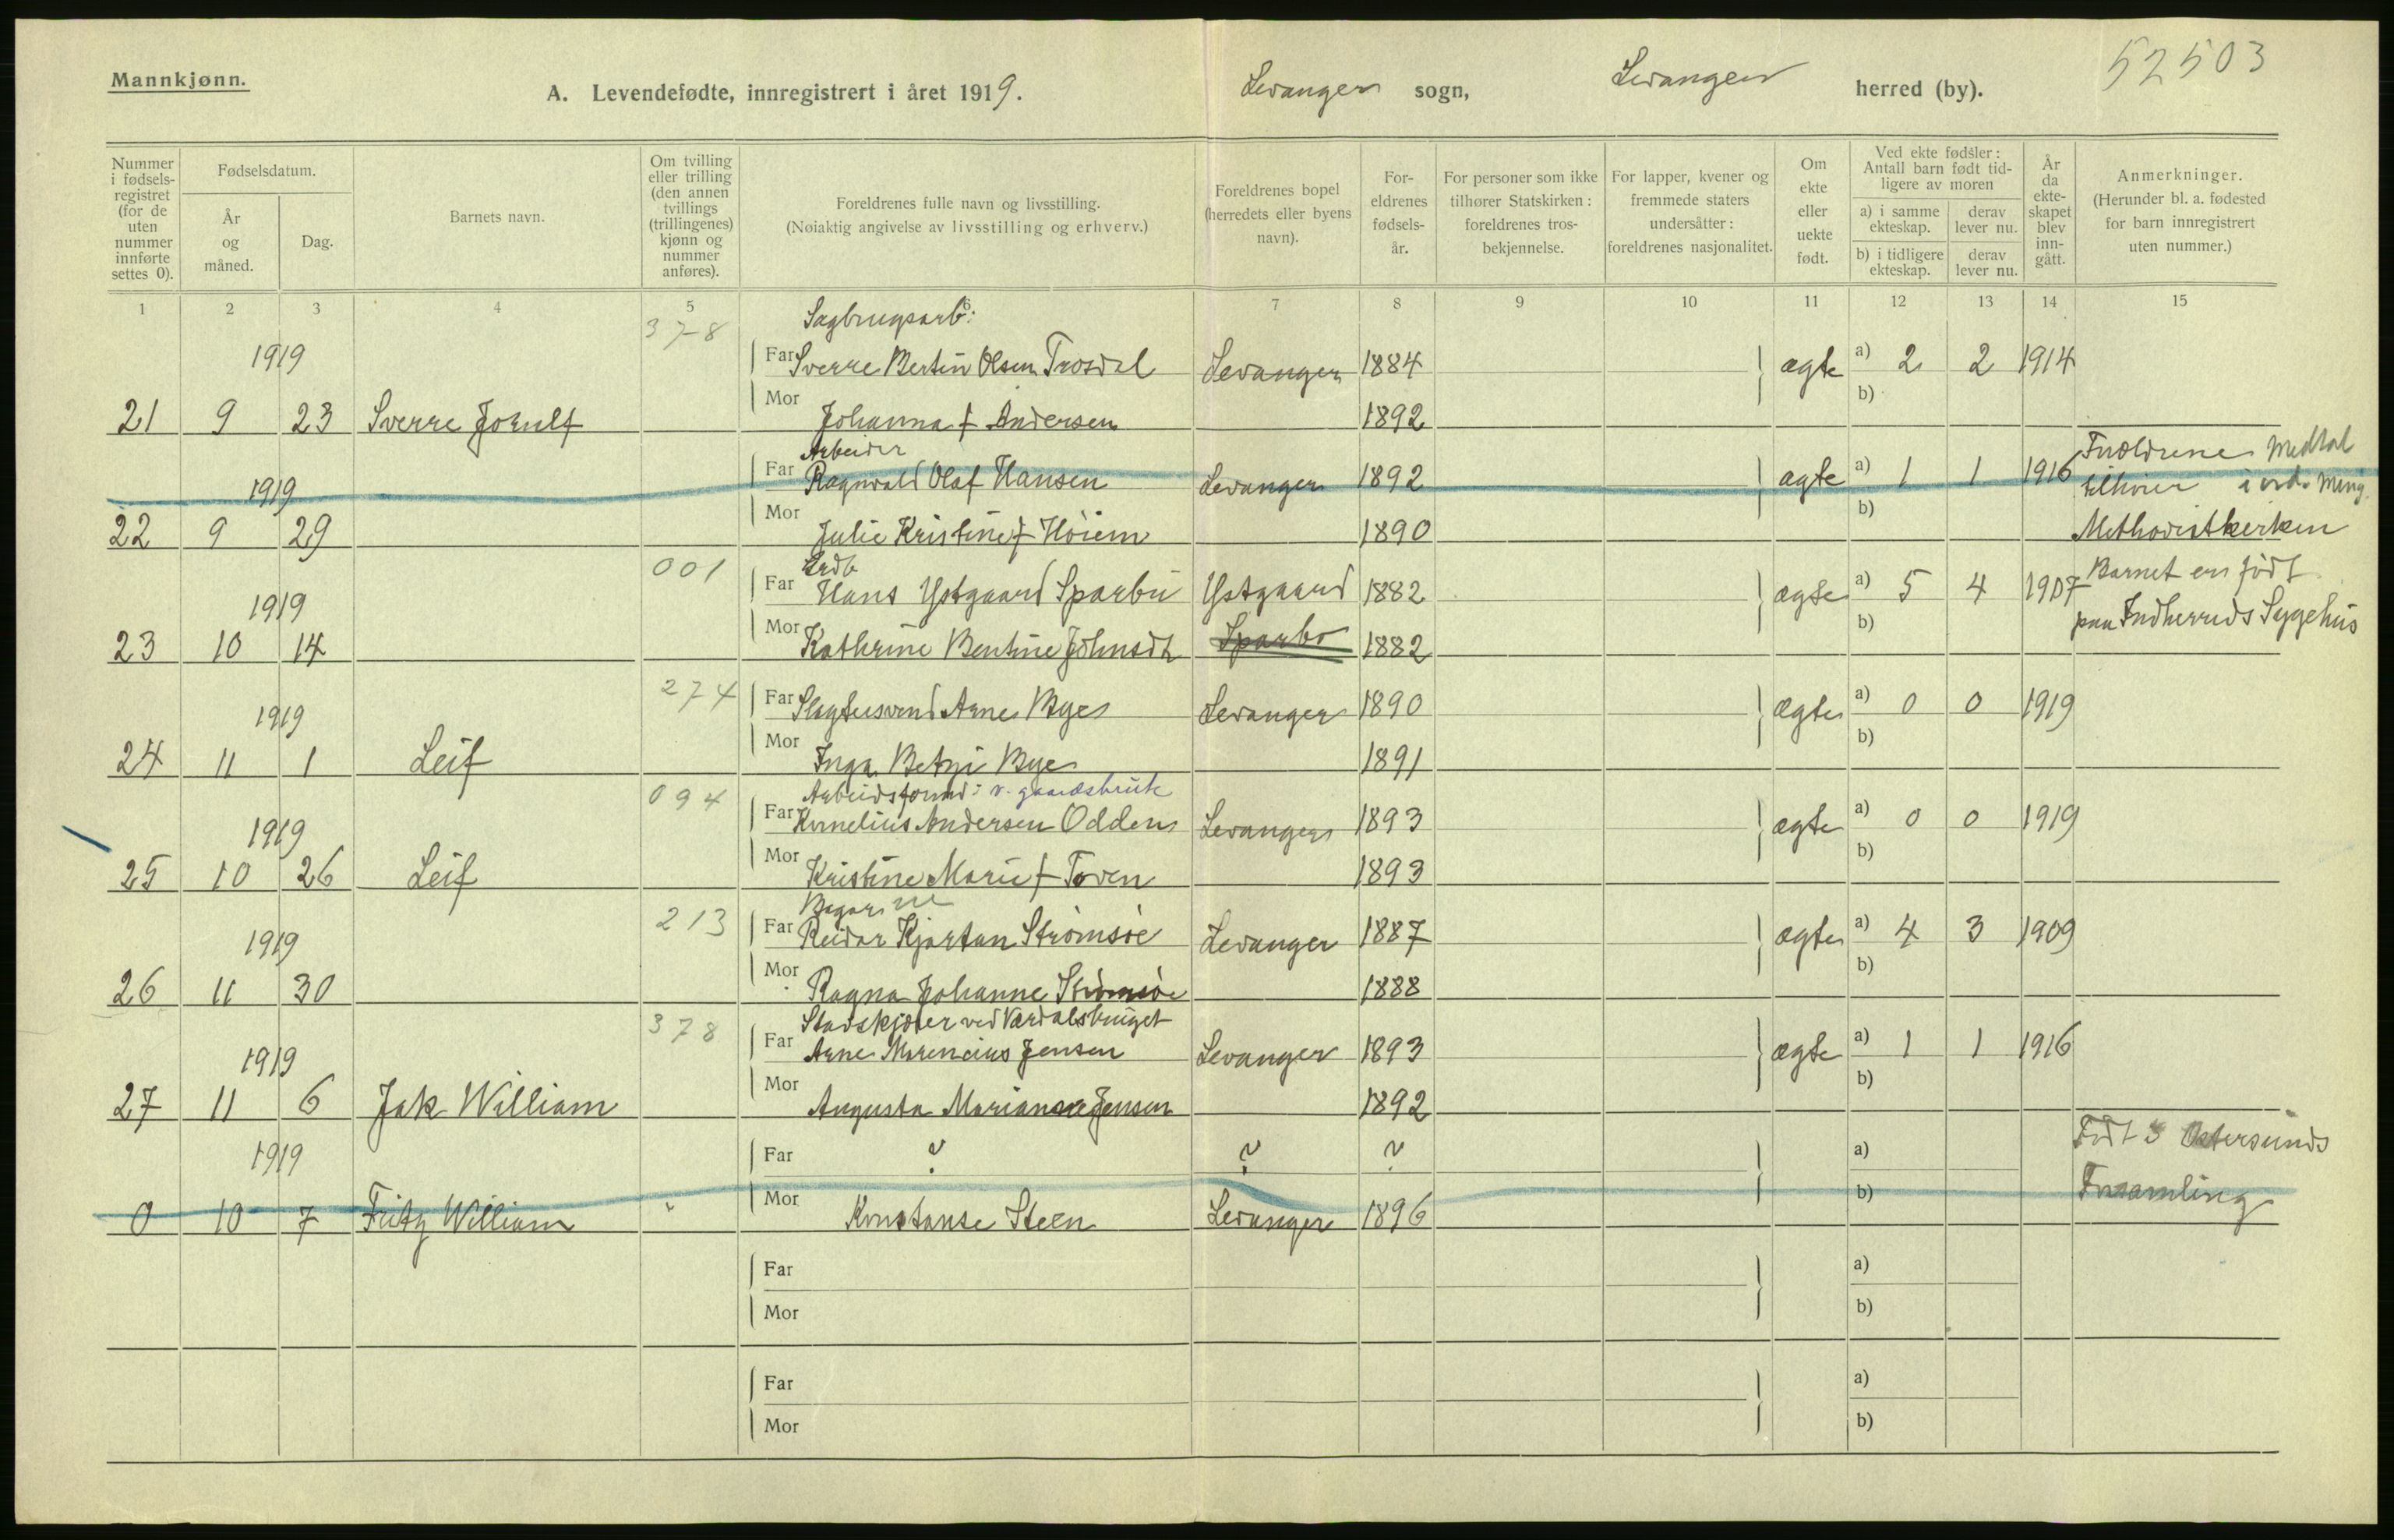 52503
Mannkjønn.
A. Levendefødte, innregistrert i året 1919. Levanger sogn, Levanger herred (by).
Nummer i fødsels- registret (for de uten nummer innførte settes 0).
Fødselsdatum.
År og måned.
Dag.
Barnets navn.
Om tvilling eller trilling (den annen tvillings (trillingenes) kjønn og nummer anføres).
Foreldrenes fulle navn og livsstilling.
(Nøiaktig angivelse av livsstilling og erhverv.)
Foreldrenes bopel (herredets eller byens navn).
For- eldrenes fødsels- år.
For personer som ikke tilhører Statskirken: foreldrenes tros- bekjennelse.
For lapper, kvener og fremmede staters undersåtter: foreldrenes nasjonalitet.
Om ekte eller uekte født.
Ved ekte fødsler: Antall barn født tid- ligere av moren
a) i samme ekteskap.
derav lever nu.
b) i tidligere ekteskap.
derav lever nu.
År da ekte- skapet blev inn- gått.
Anmerkninger.
(Herunder bl. a. fødested for barn innregistrert uten nummer.)
1 2 3 4 5 6 7 8 9 10 11 12 13 14 15
378 Sagbrugsarb:
1919 Far Sverre Bertin Olsen Trosdal Levanger 1884 ægte a) 2 2 1914
21 9 23 Sverre Jornulf Mor Johanna f Andersen 1892 b)
Arbeider
1919 Far Ragnvald Olaf Hansen Levanger 1892 ægte a) 1 1 1916 Foreldrene tilhører Medtal i ord.
22 9 29 Mor Julie Kristine f Høiem 1890 b) Methodistkerken
001 Grdb
1919 Far Hans Ystgaard Sparbu Ystgaard 1882 ægte a) 5 4 1907 Barnet er født
23 10 14 Mor Kathrine Bentine Johnsdt Sparbo 1882 b) paa Indherreds Sygehus
274
1919 Far Slagtersvend Arne Bye Levanger 1890 ægte a) 0 0 1919
24 11 1 Leif Mor Inga Betzi Bye 1891 b)
094 Arbeidsform: v. gaardsbruk
1919 Far Kornelius Andersen Odden Levanger 1893 ægte a) 0 0 1919
25 10 26 Leif Mor Kristine Marie f Toven 1893 b)
213 Bager
1919 Far Reidar Kjartan Strømsøe Levanger 1887 ægte a) 4 3 1909
26 11 30 Mor Ragna Johanne Strømsøe 1888 b)
378 Stadskjører ved Værdalsbruget
1919 Far Arne Marencius Jensen Levanger 1893 ægte a) 1 1 1916
27 11 6 Jak William Mor Augusta Marianne Jensen 1892 b)
1919 Far ? ? ? a) Født i Østersunds
0 10 7 Fritz William " Mor Konstanse Steen Levanger 1896 b) Forsamling
Far a)
Mor b)
Far a)
Mor b)